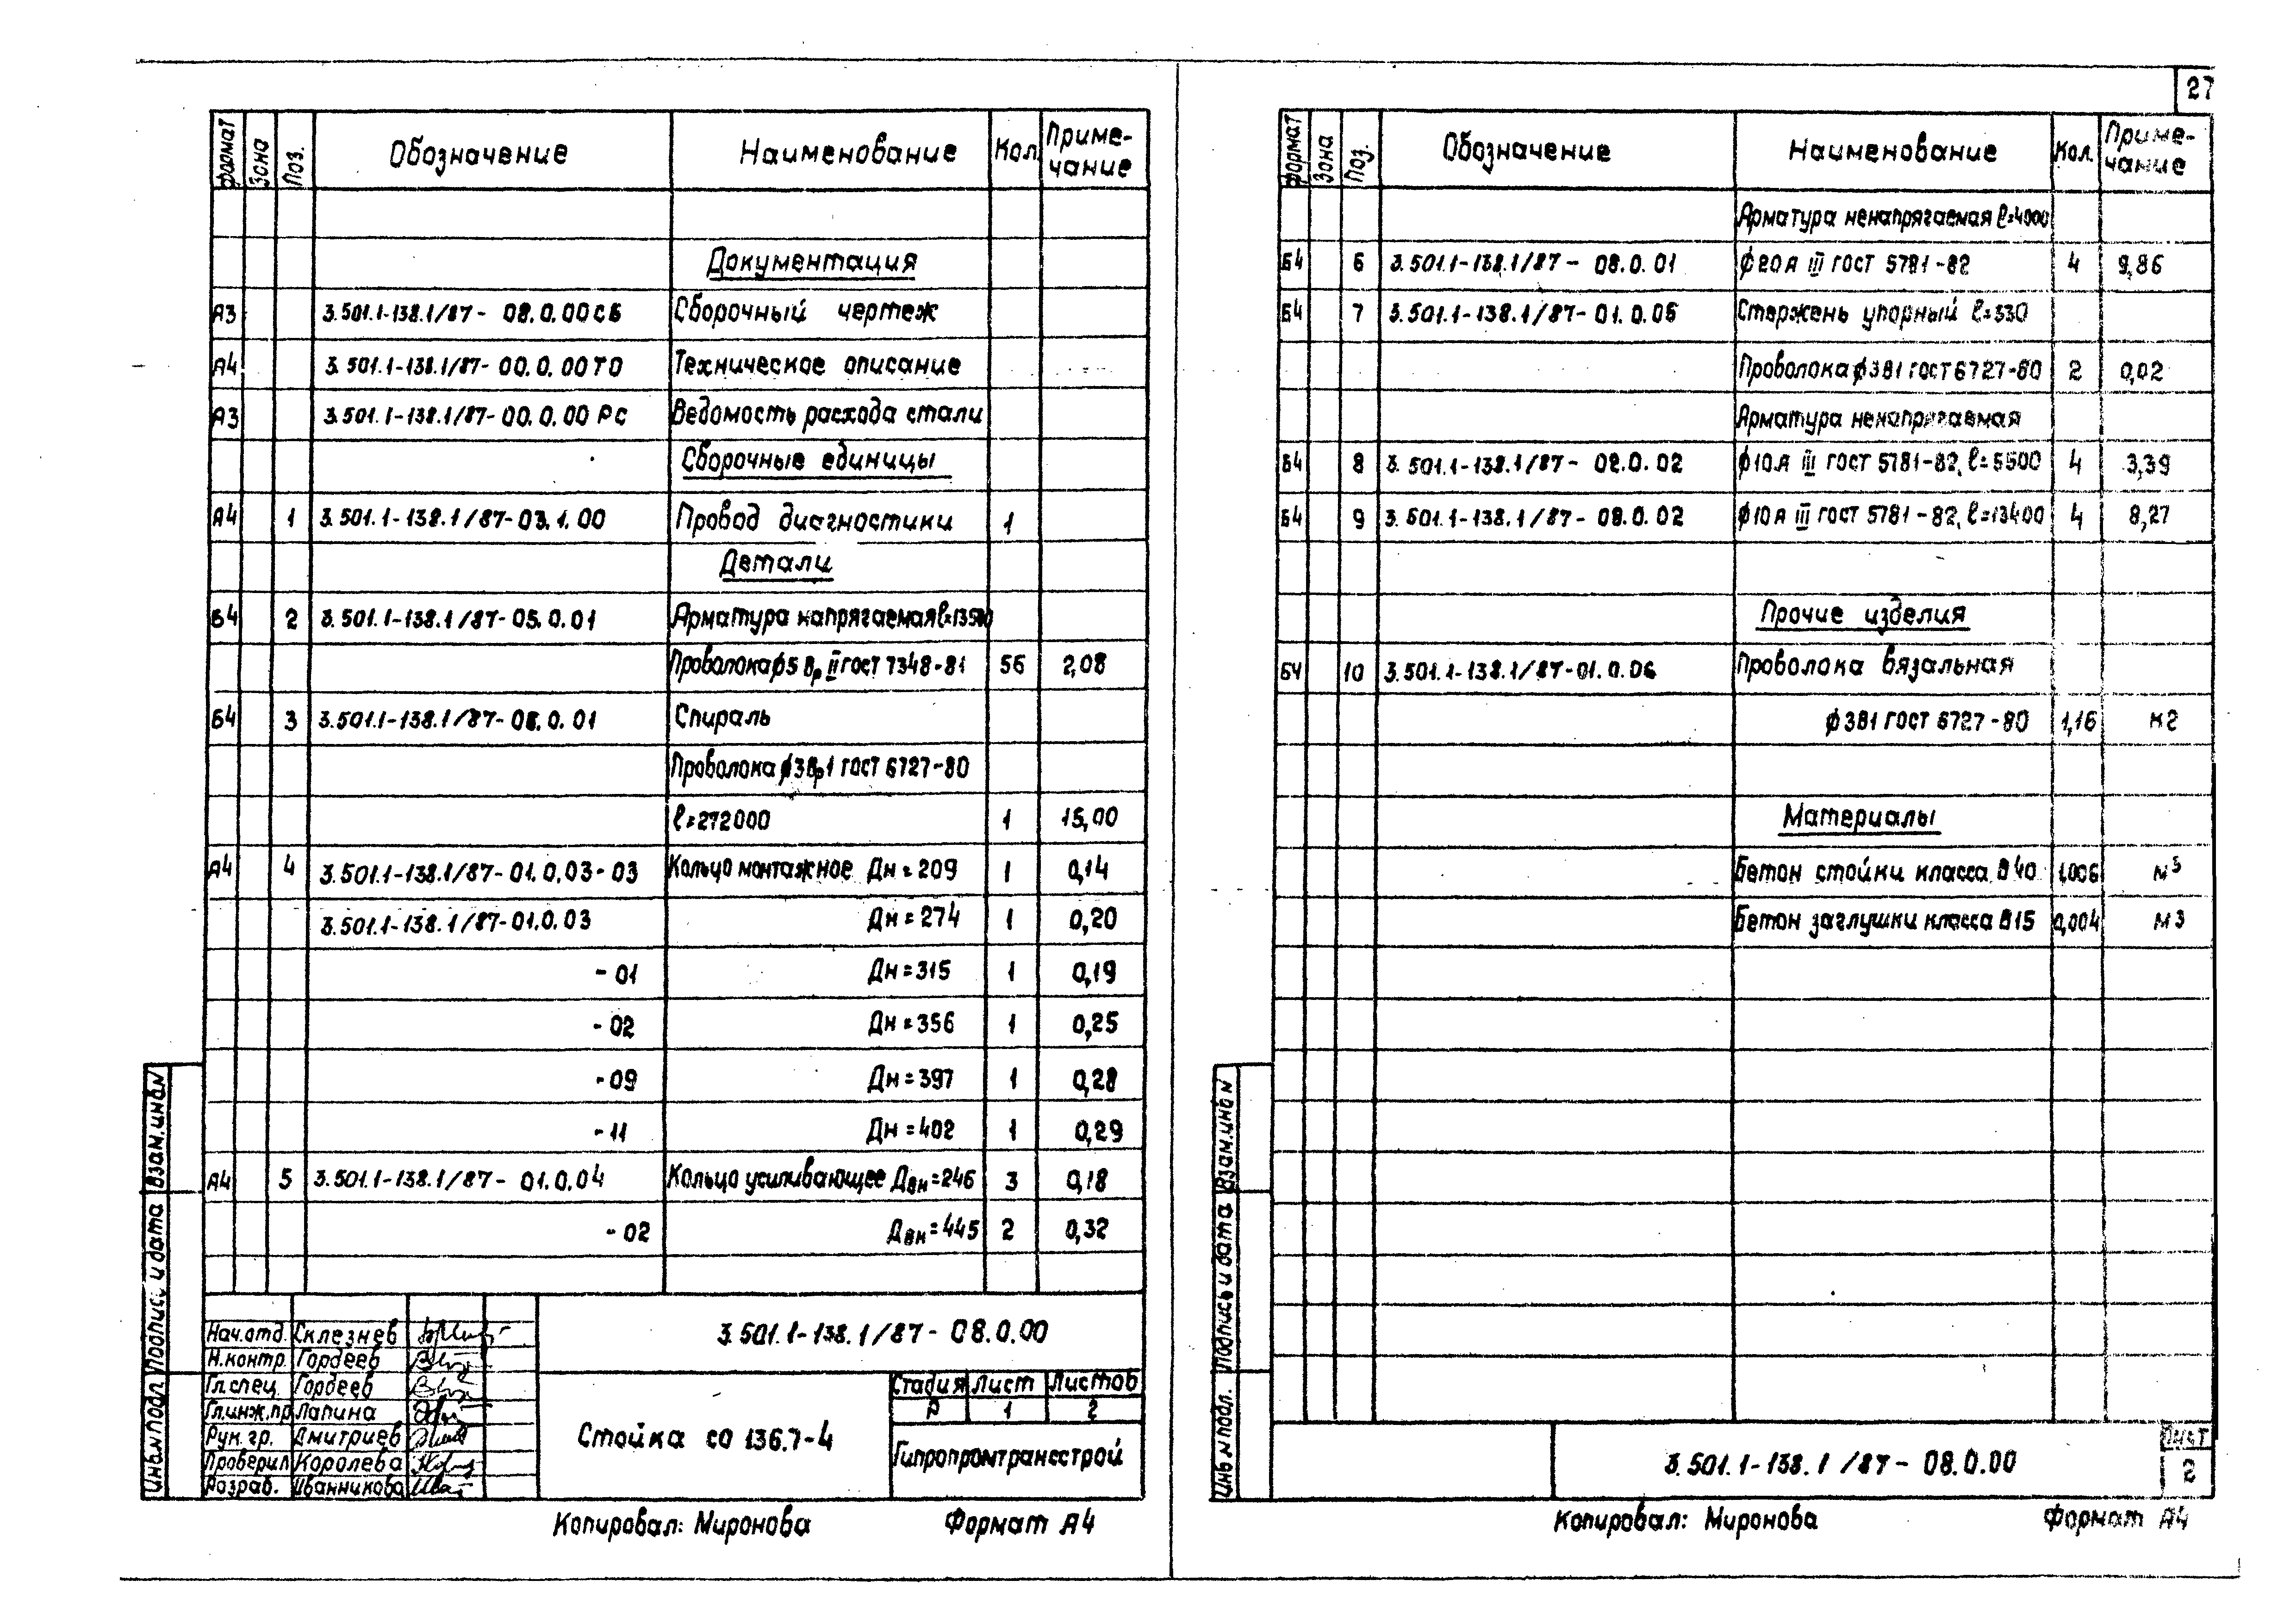 27
Формат Зона Поз. Обозначение Наименование Кол. Приме-чание
Документация
А3 3.501.1-138.1/87- 08.0.00СБ Сборочный чертеж
А4 3.501.1-138.1/87- 00.0.00ТО Техническое описание
А3 3.501.1-138.1/87- 00.0.00 РС Ведомость расхода стали
Сборочные единицы
А4 1 3.501.1-138.1/87-03.1.00 Провод диагностики 1
Детали
Б4 2 3.501.1-138.1/87-05.0.01 Арматура напрягаемая ℓ=13500
Проволока ϕ5 Вр II ГОСТ 7348-81 56 2,08
Б4 3 3.501.1-138.1/87-08.0.01 Спираль
Проволока ϕ3Вр1 ГОСТ 6727-80
ℓ=272000 1 15,00
А4 4 3.501.1-138.1/87-01.0.03-03 Кольцо монтажное Дн=209 1 0,14
3.501.1-138.1/87-01.0.03 Дн=274 1 0,20
-01 Дн=315 1 0,19
-02 Дн=356 1 0,25
-09 Дн=397 1 0,28
-11 Дн=402 1 0,29
А4 5 3.501.1-138.1/87- 01.0.04 Кольцо усиливающее Двн=246 3 0,18
-02 Двн=445 2 0,32
Инв.N подл. Подпись и дата Взам.инв.N
Нач.отд. Склезнев
Н.контр. Гордеев
Гл.спец. Гордеев
Гл.инж.пр Лапина
Рук.гр. Дмитриев
Проверил Королева
Разраб. Иванникова
3.501.1-138.1/87- 08.0.00
Стойка СО 136.7-4
Стадия Лист Листов
Р 1 2
Гипропромтрансстрой
Копировал: Миронова Формат А4
Формат Зона Поз. Обозначение Наименование Кол. Приме-чание
Арматура ненапрягаемая ℓ=4000
Б4 6 3.501.1-138.1/87- 08.0.01 ϕ20А III ГОСТ 5781-82 4 9,86
Б4 7 3.501.1-138.1/87-01.0.05 Стержень упорный ℓ=330
Проволока ϕ3В1 ГОСТ 6727-80 2 0,02
Арматура ненапрягаемая
Б4 8 3.501.1-138.1/87- 08.0.02 ϕ10А III ГОСТ 5781-82, ℓ=5500 4 3,39
Б4 9 3.501.1-138.1/87- 08.0.02 ϕ10А III ГОСТ 5781-82, ℓ=13400 4 8,27
Прочие изделия
Б4 10 3.501.1-138.1/87-01.0.06 Проволока вязальная
ϕ3В1 ГОСТ 6727-80 1,16 кг
Материалы
Бетон стойки класса В40 1,006 м3
Бетон заглушки класса В15 0,004 м3
Инв.N подл. Подпись и дата Взам.инв.N
3.501.1-138.1/87- 08.0.00
Лист
2
Копировал: Миронова Формат А4